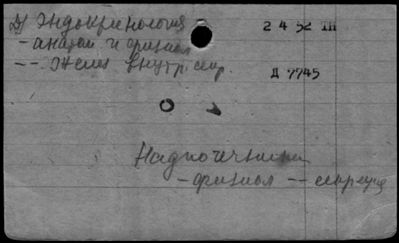 Эндокринология 2 4 52 III
- анатом и физиол
-- Желез внутр. секр.
Д 7745
Надпочечники
- физиол -- секреция